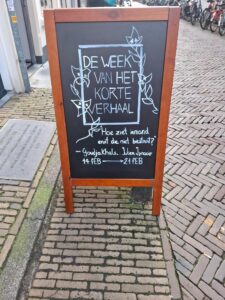 DE WEEK
VAN HET
KORTE
VERHAAL
"Hoe ziet iemand
eruit die niet bestaat?"
14 FEB → 21 FEB